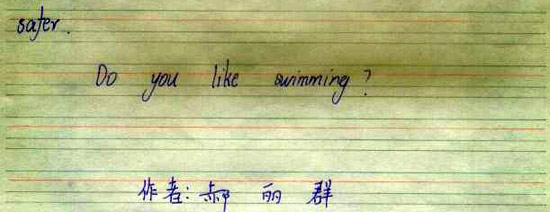 safer.
Do you like swimming?
作者: 郝丽群